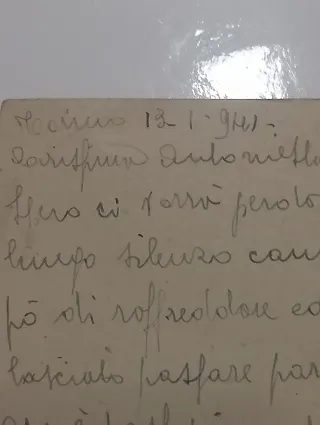 Torino 13-1-941-
Carissima Antonietta
Spero ci vorrà perdo
lungo silenzo cau
pò di raffreddore ed
lasciato passare par